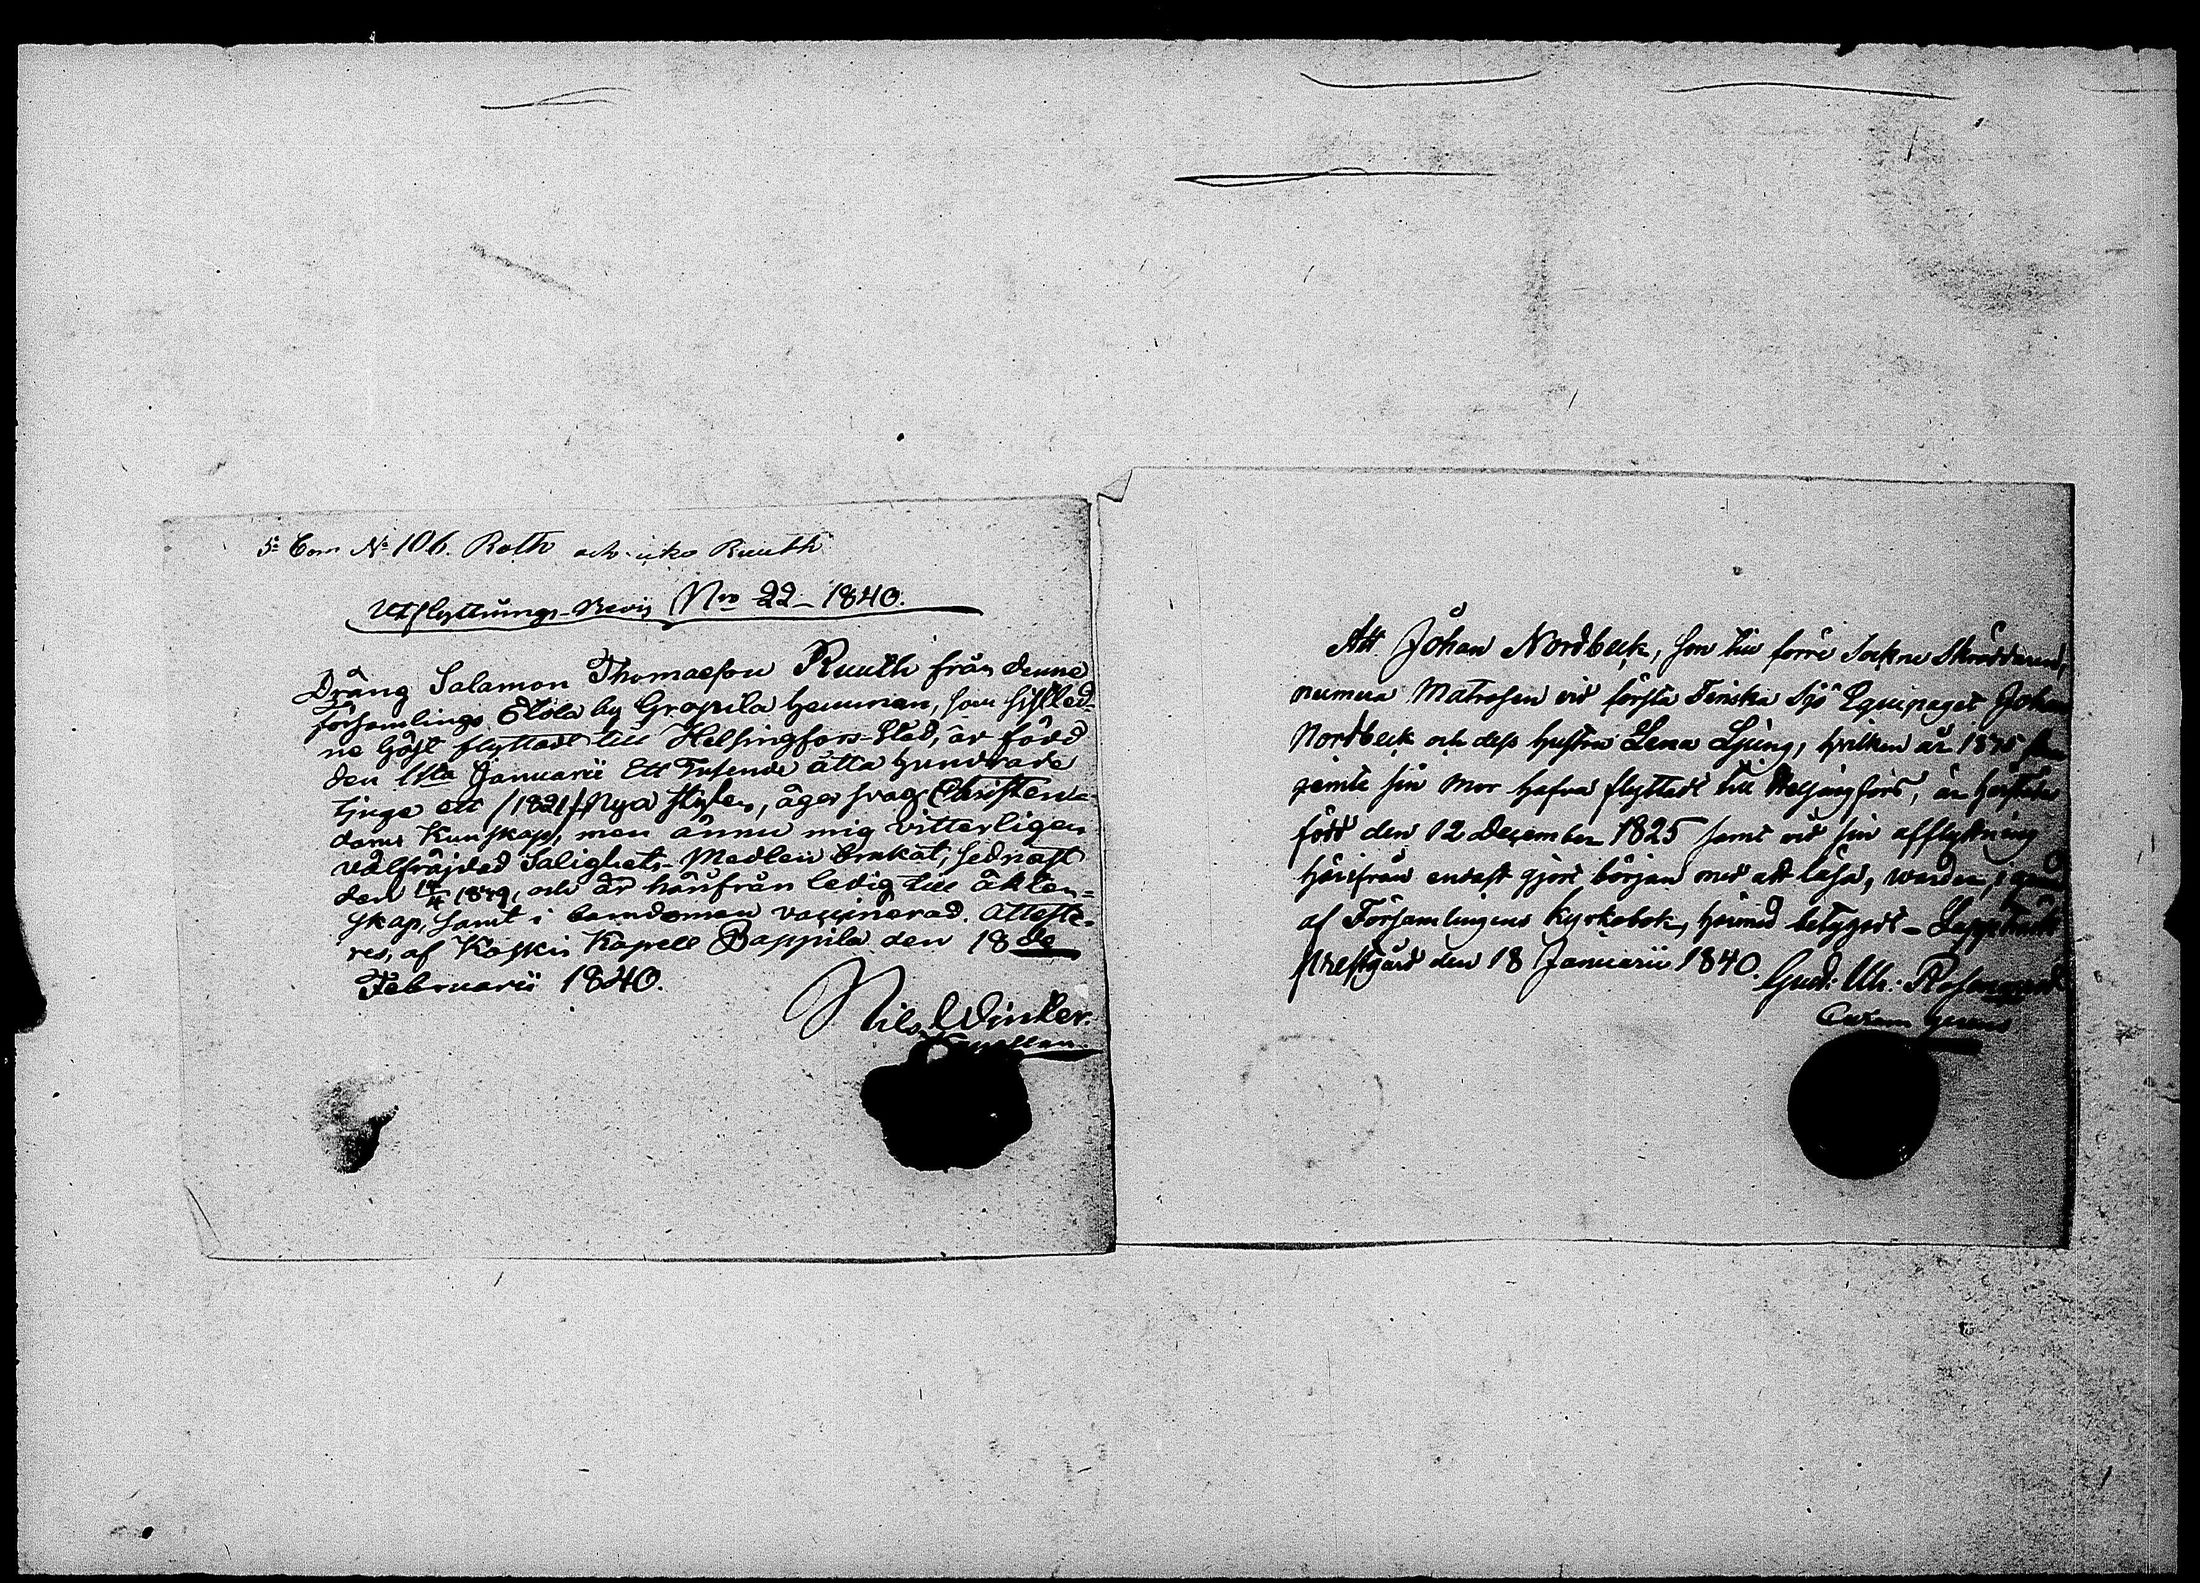 5:e Com No 106. Roth och icke Ruuth
Utflyttnings-Bevis Nro 22 - 1840.
Dräng Salamon Thomaesson Ruuth från denne
församlings Etola by Gropila Hemman, som sistled-
ne höst flyttadt till Helsingfors Stad, är född
den 1sta Januarii Ett Tusende åtta hundrade
tjuge ett /1821/ Nya stylen, äger svag Christen-
doms Kunskap, men ännu mig vitterligen
välfräjdad Salighets-Medlen brukat, sednast
den, och är härifrån ledig till äkten=
skap, samt i barndomen vaccinerad. Atteste-
res, af Koskis Kapell Pappila den 18de
Februarii 1840.
Nils Winter.
Capellan.
Att Johan Nordbeck, son till förre Sockne Skräddaren,
numera Matrosen vid första Finska Sjö Equipaget Johan
Nordbeck och dess hustru Lena Ljung, hvilken år 1835
jemte sin mor hafva flyttadt till Helsingfors, är
född den 12 December 1825 samt vid sin afflyttning
härifrån endast gjort början med att läsa, warder,
af Församlingens Kyrkobok, härmed betygadt -
Prestgård den 18 Januarii 1840.
Gust. Ulr.